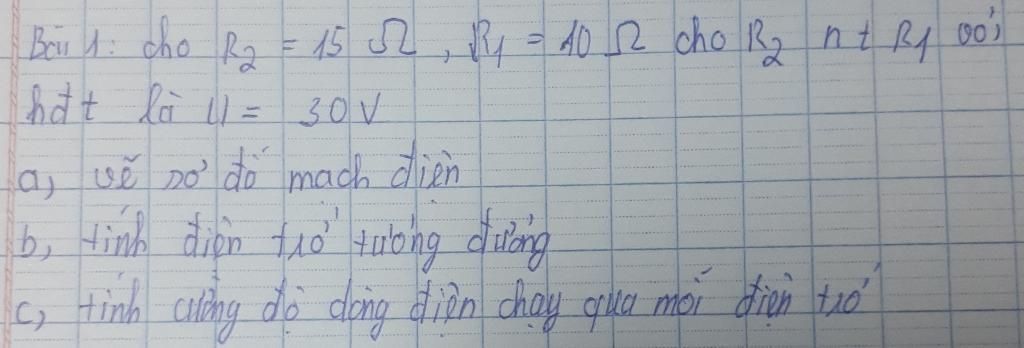 Bài 1: cho R₂ = 15 Ω, R1 = 10 Ω cho R₂ nt R1 với
hđt là U = 30V
a, vẽ sơ đồ mạch điện
b, tính điện trở tương đương
c, tính cường độ dòng điện chạy qua mỗi điện trở